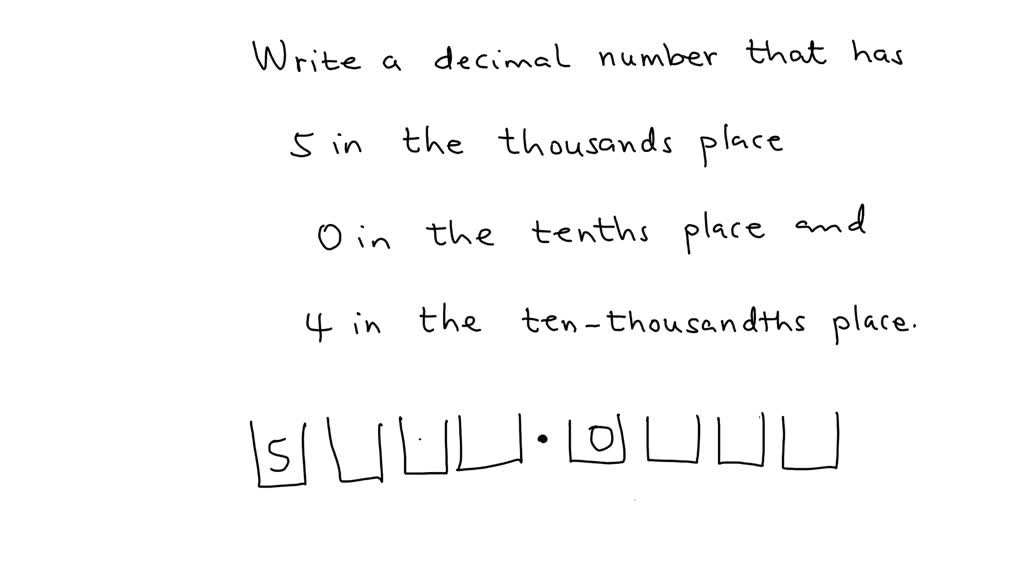 Write a decimal number that has
5 in the thousands place
0 in the tenths place and
4 in the ten-thousandths place.
5 . 0